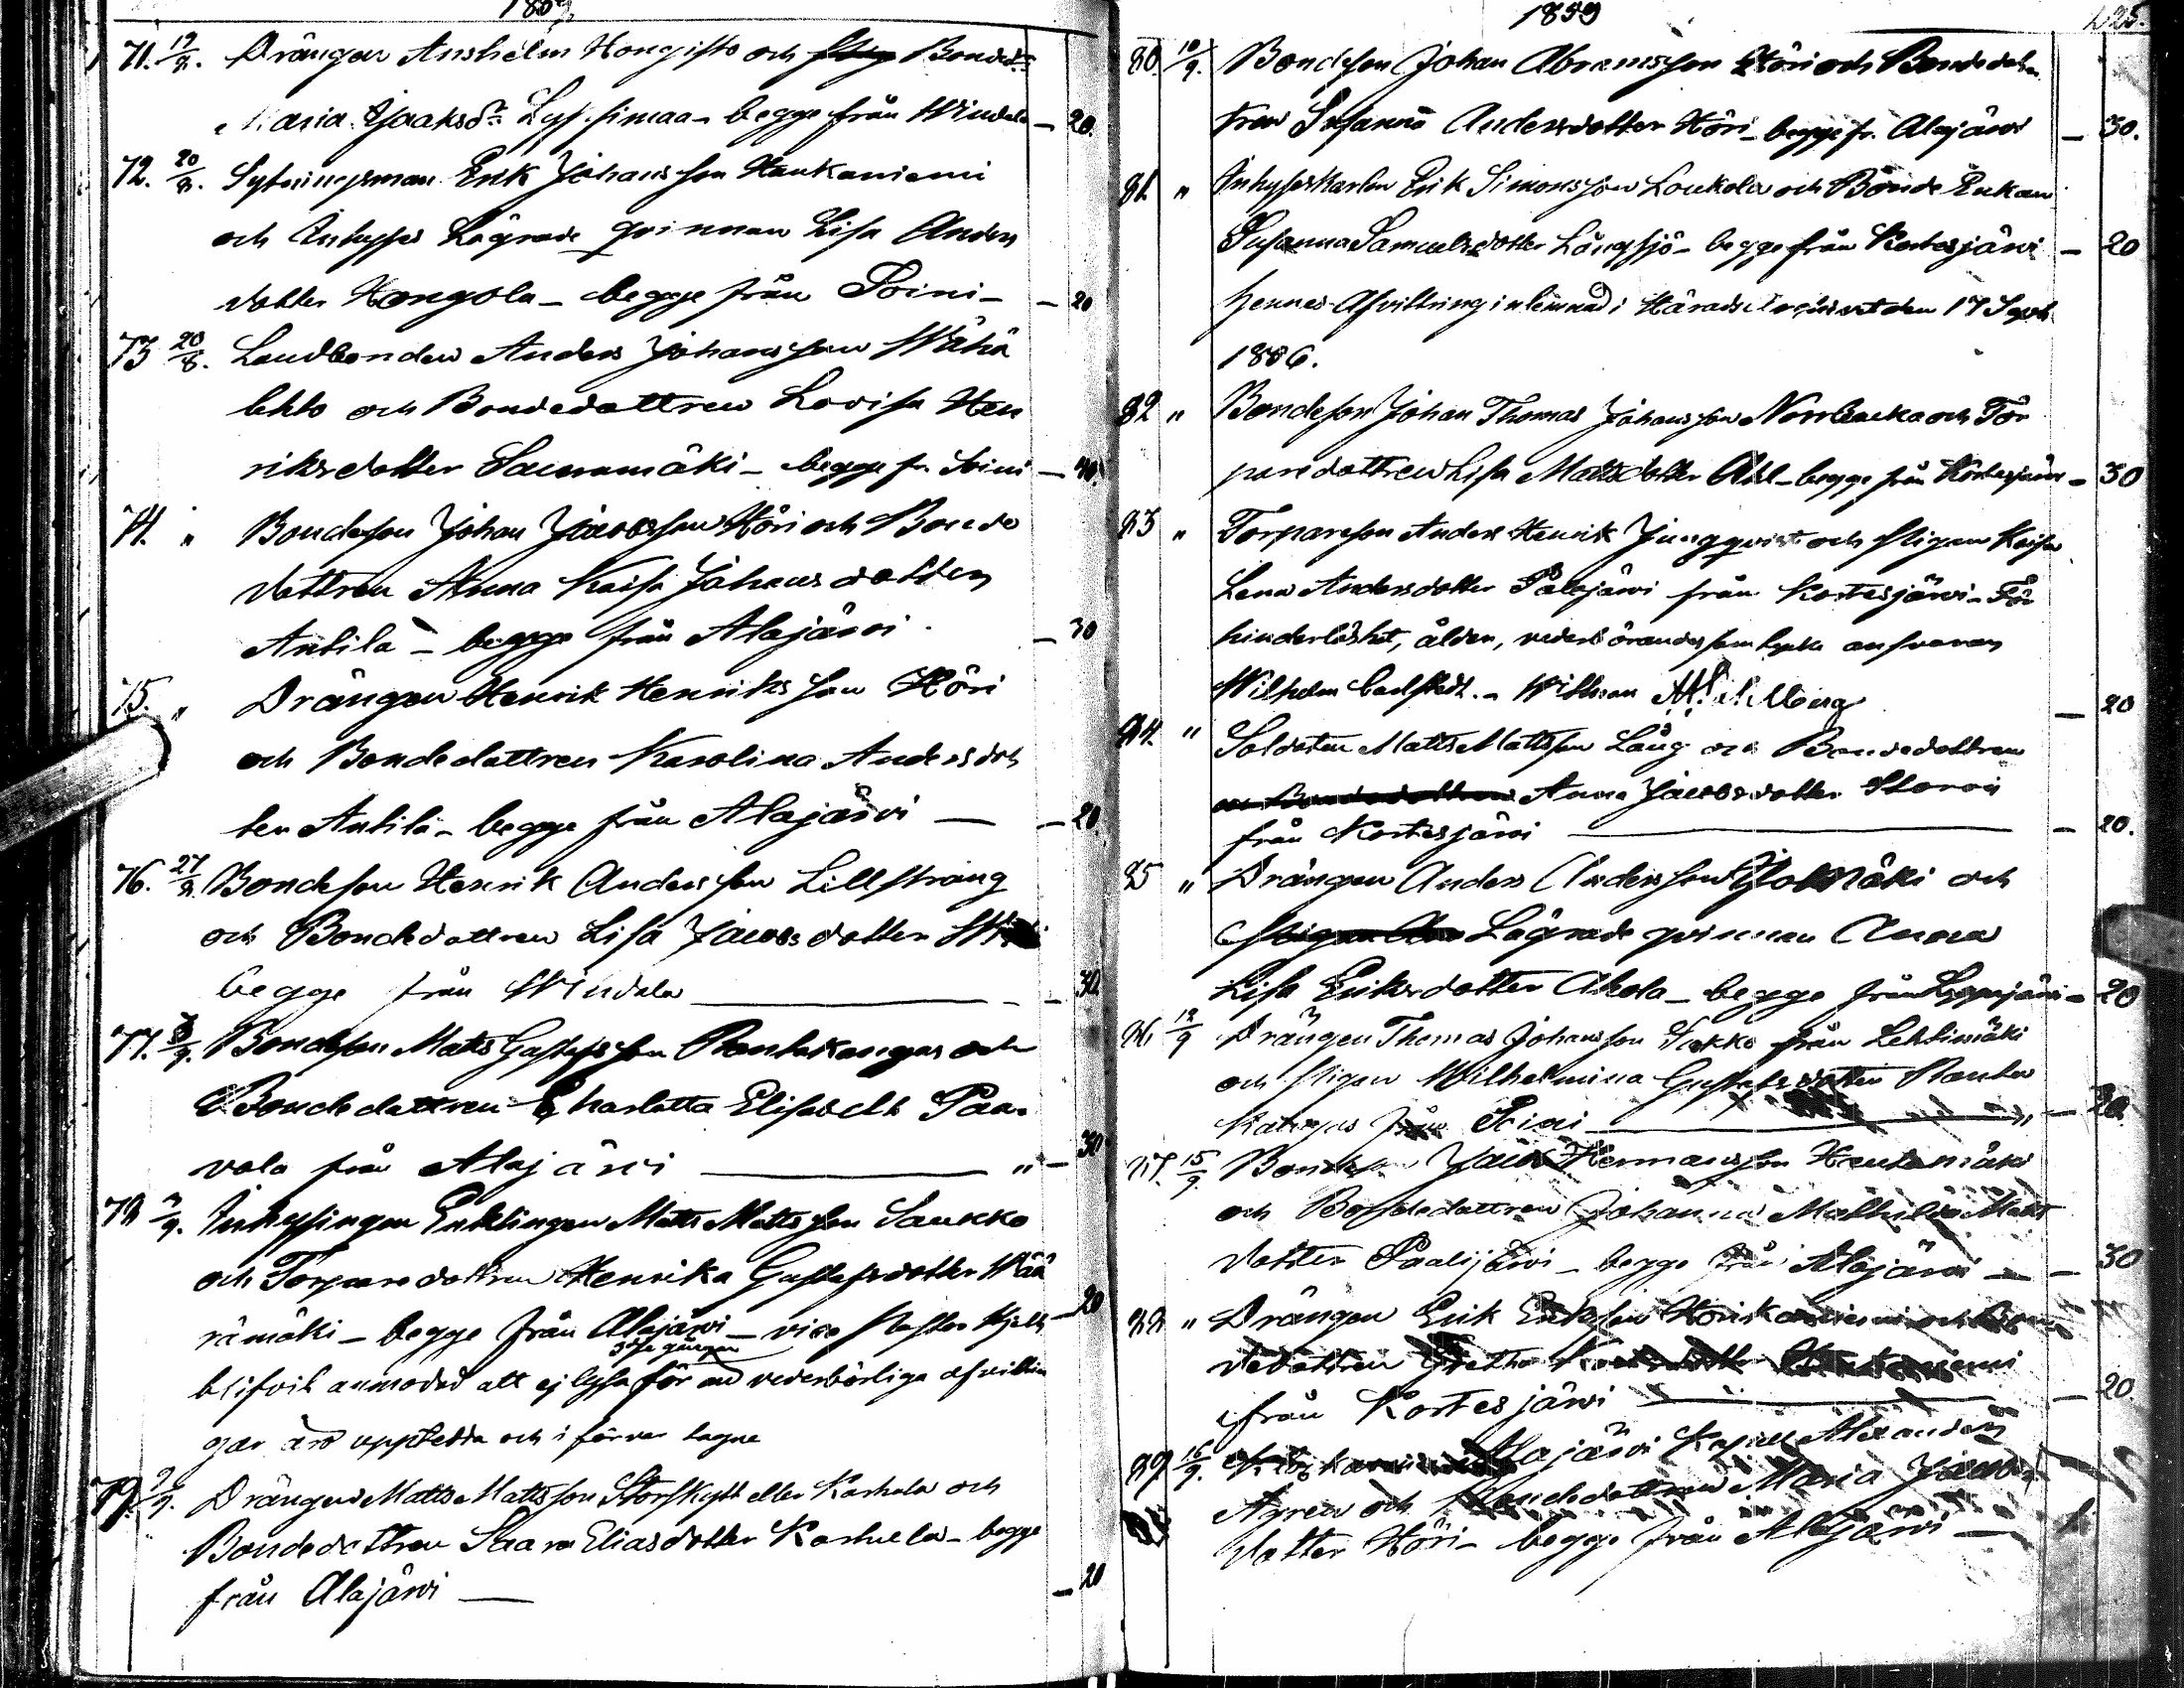 1859
71. 19/8. Drängen Anshelm Hongisto och Bonded:
Maria Jaaksd:r begge från Windala — 20.
72. 20/8. Sytningsman Erik Johansson Haukaniemi
och Inhyses Lägrade qvinnan Lisa Anders
dotter Hangola — begge från Soini — 20
73 20/8. Landbonden Anders Johansson Wähä
lehto och Bondedottren Lovisa Hen
riksdotter Saunamäki — begge fr. Soini — 40.
74. " Bondeson Johan Jacobsson Höri och Bonde
dottren Anna Kaisa Johansdotter
Antila — begge från Alajärvi — 30
75. " Drängen Henrik Henriksson Höri
och Bondedottren Karolina Andersdot
ter Antila — begge från Alajärvi — 20.
76. 27/8. Bondeson Henrik Andersson Lillstrang
och Bondedottren Lisa Jacobsdotter
begge från Windala — 30
77. /9. Bondeson Matts Gustafsson Rantakangas och
Bondedottren Charlotta Elisabeth Paa-
vola från Alajärvi " — 30
78 /9. Inhysingen Enklingen Matts Mattsson Saukko
och Torparedottren Henrika Gustafsdotter Wää
rämäki — begge från Alajärvi — vice Pastor Hjelt — 20
3dje gången
blifvit anmodad att ej lysa för än vederbörliga afvittrin
gar äro upptedda och i förvar tagne
79. 9/9. Drängen Matts Mattsson Storskytt eller Karhula och
Bondedottren Saara Eliasdotter Karhula — begge
från Alajärvi — 20
1859
225.
80. 10/9. Bondeson Johan Abramsson Höri och Bondedot
tren Susanna Andersdotter Höri — begge fr. Alajärvi — 30.
81. " Inhyseskarlen Erik Simonsson Loukola och Bonde Enkan
Susanna Samuelsdotter Långsjö — begge från Kortesjärvi — 20
hennes Afvittring inlemnad i Härads Archivet den 17 Sept.
1856.
82 " Bondeson Johan Thomas Johansson Norrbacka och Tor
paredottren Lisa Mattsdotter Ahl — begge från Kortesjärvi — 30
83 " Torpareson Anders Henrik Jungqvist och Pigan Kaisa
Lena Andersdotter Palojärvi från Kortesjärvi — För
hinderlöshet, ålder, vederbörandes samtycke ansvarar
Wilhelm Carlstedt. — Wittnar — 20
84. " Soldaten Matts Mattsson Lång och Bondedottren
Anna Jacobsdotter
från Kortesjärvi — 20.
85 " Drängen Anders Andersson och
Lägrade qvinnan Anna
Lisa Eriksdotter Ahola — begge från Lappajärvi — 20
86. 12/9 Drängen Thomas Johansson från Lehtimäki
och Pigan Wilhelmina Gustafsdotter Ranta
kangas från Soini — 20.
87. 15/9. Bondeson Jacob Hermansson Hautamäki
och Bondedottren Johanna Mathilda Matts
dotter Paalijärvi — begge från Alajärvi — 30
88 " Drängen Erik Eriksson
dedottren Gretha
från Kortesjärvi — 20
89 16/9. Alajärvi Kapell Alexander
Ågren och Bondedottren Maria Jacobs
dotter Höri — begge från Alajärvi —